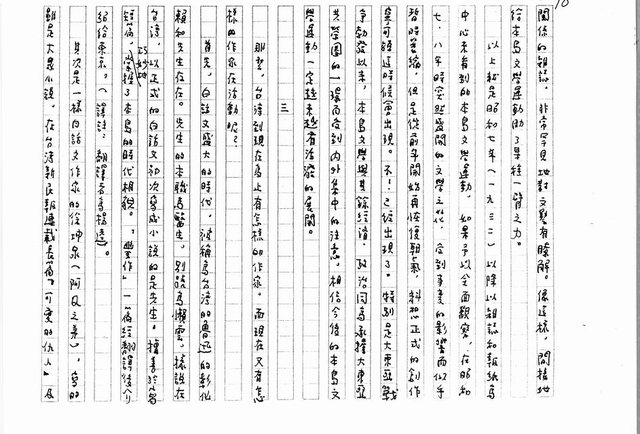 10
關係的雜誌,非常罕見地對文藝有瞭解。像這樣,間接地
給本島文學運動助了某種一臂之力。
以上就是昭和七年(一九三二)以降以雜誌和報紙為
中心來看到的本島文學運動,如果予以全面觀察,在昭和
七、八年時突然盛開的文學之花,受到事變的影響而似乎
暫時萎縮,但是從前年開始再恢復朝氣,料想正式的創作
可能隨這時候會出現。不!已經出現了。特別是大東亞戰
爭勃發以來,本島文學與其餘經濟、政治同為承擔大東亞
共榮圈的一環而受到內外集中的注意,相信今後的本島文
學運動一定越來越有活潑的展開。
三
那麼,台灣到現在為止有怎樣的作家,而現在又有怎
樣的作家在活動呢?
首先,白話文盛大的時代,被稱為台灣的魯迅的彰化
賴和先生存在。先生的本職為醫生,別號為懶雲,據說在
台灣,以正式的白話文初次寫成小說的是先生。擅長於寫
短篇,巧妙地掌握了本島的時代相貌。「豐作」一篇經翻譯後介
紹給東京。(譯註:翻譯者為楊逵)。
其次是一樣白話文作家的徐坤泉(阿Q之弟),寫的
雖是大眾小說,在台灣新民報連載長篇「可愛的仇人」及